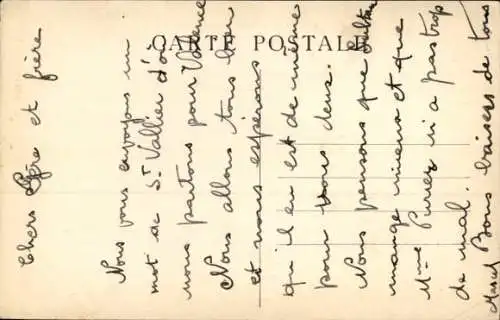 CARTE POSTALE
Chers Père et frère
Nous vous envoyons un
mot de St Vallier d'où
nous partons pour Valence
Nous allons tous bien
et nous espérons
qu'il en est de même
pour vous deux.
Nous pensons que
mange mieux et que
Mme n'a pas trop
de mal.
Bons baisers de tous
Marcel